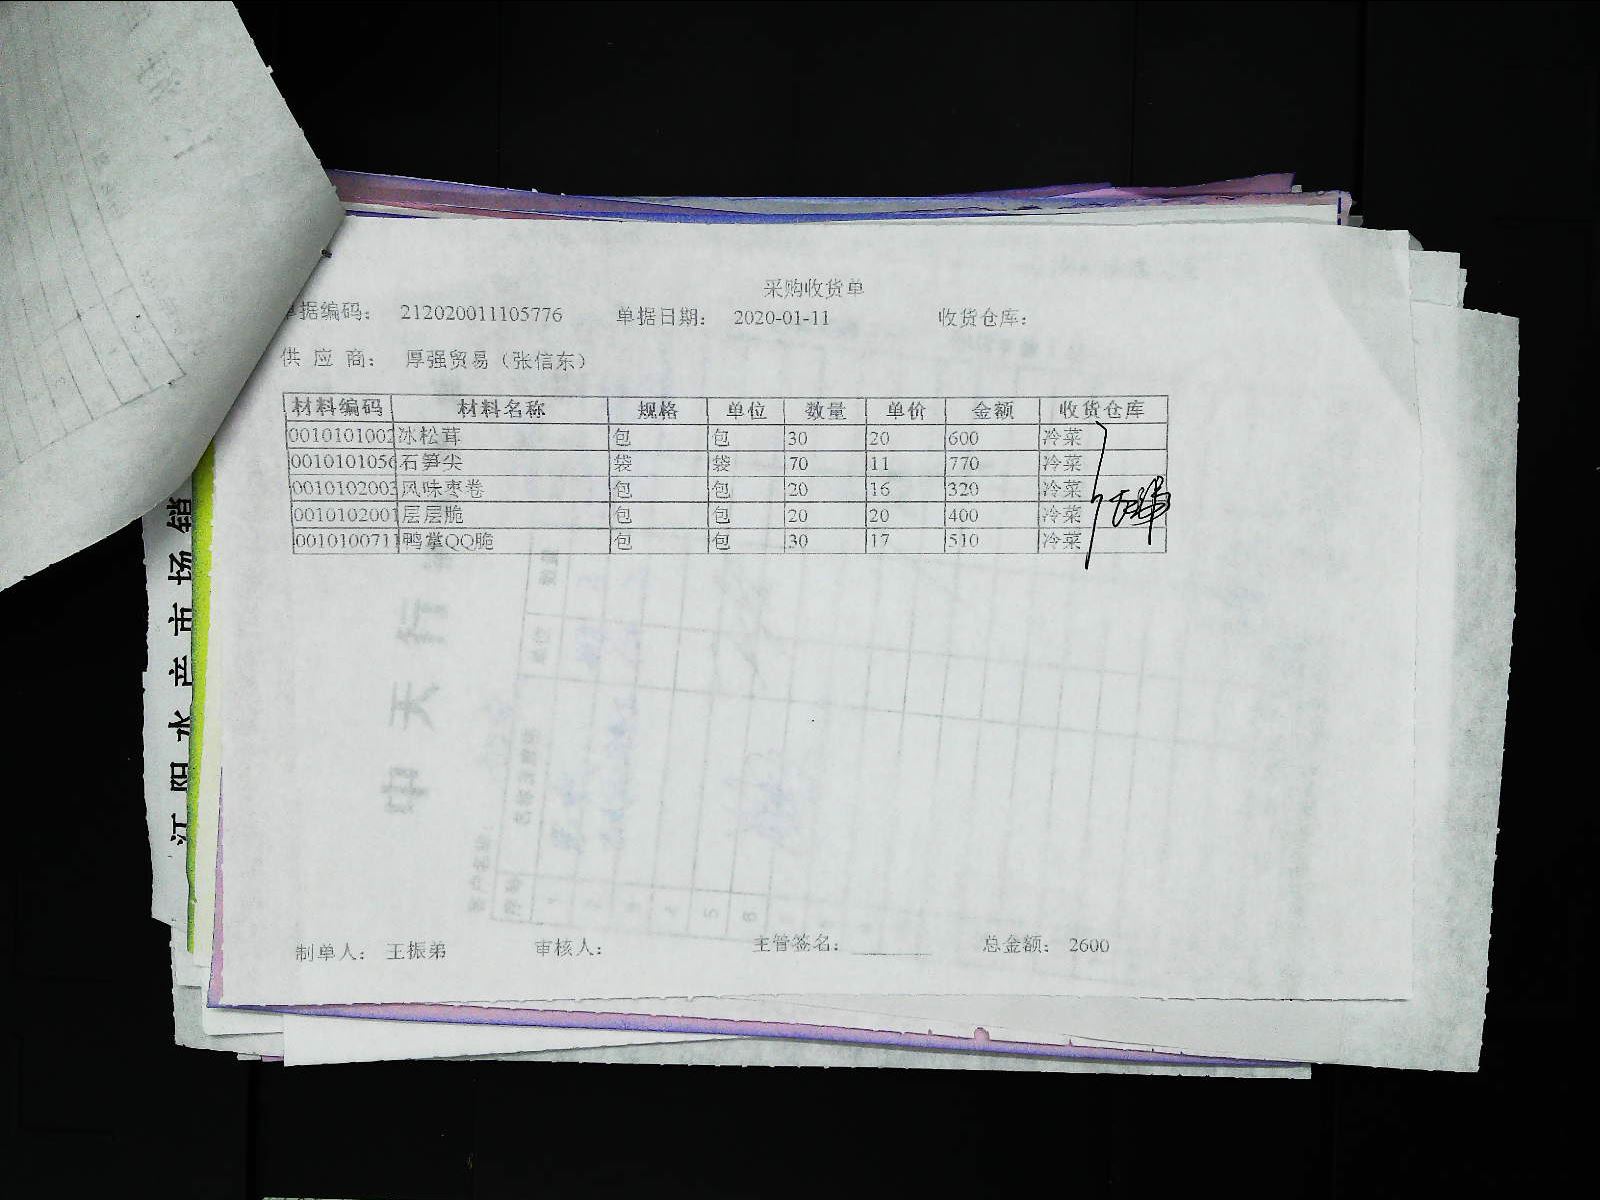 采购收货单
单据编码： 212020011105776 单据日期： 2020-01-11 收货仓库：
供 应 商： 厚强贸易（张信东）
材料编码 材料名称 规格 单位 数量 单价 金额 收货仓库
0010101002 冰松茸 包 包 30 20 600 冷菜
0010101056 石笋尖 袋 袋 70 11 770 冷菜
0010102003 风味枣卷 包 包 20 16 320 冷菜
0010102001 层层脆 包 包 20 20 400 冷菜
0010100711 鸭掌QQ脆 包 包 30 17 510 冷菜
制单人： 王振弟 审核人： 主管签名： 总金额： 2600
江阳水产市场销
中天行